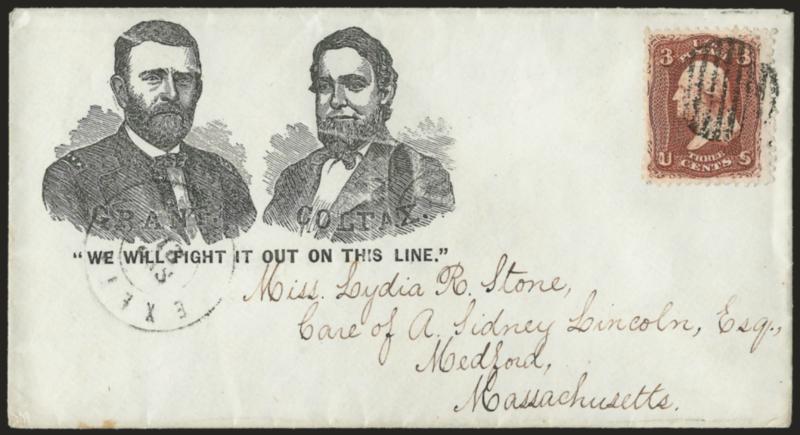 GRANT.
COLFAX.
"WE WILL FIGHT IT OUT ON THIS LINE."
3 3
U S
THREE
CENTS
Miss. Lydia R. Stone,
Care of A. Sidney Lincoln, Esq.,
Medford,
Massachusetts.